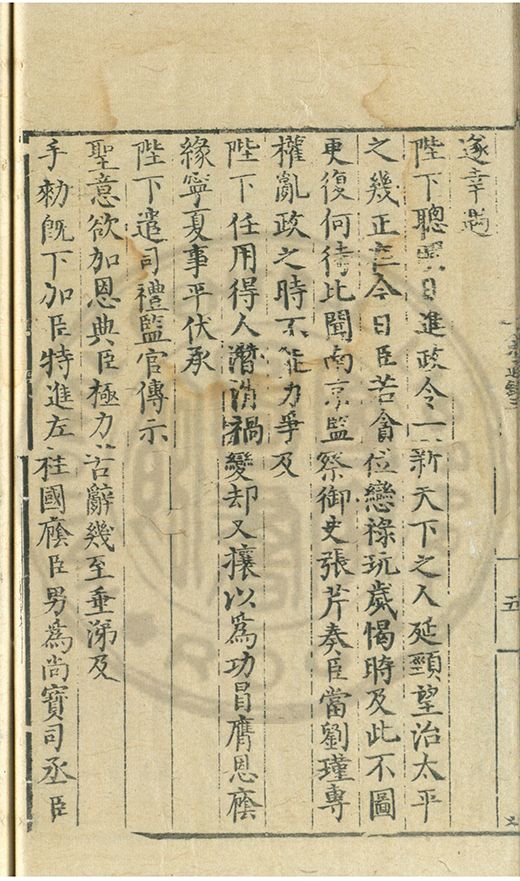 遂幸遇
陛下聰明日進政令一新天下之人延頸望治太平
之幾正在今日臣若貪位戀祿玩歲愒時及此不圖
更復何待比聞南京監察御史張芹奏臣當劉瑾專
權亂政之時不能力爭及
陛下任用得人潛消禍變却又攘以為功冒膺恩廕
緣寧夏事平伏承
陛下遣司禮監官傳示
聖意欲加恩典臣極力苦辭幾至垂涕及
手勑旣下加臣特進左柱國廕臣男為尚寶司丞臣
五